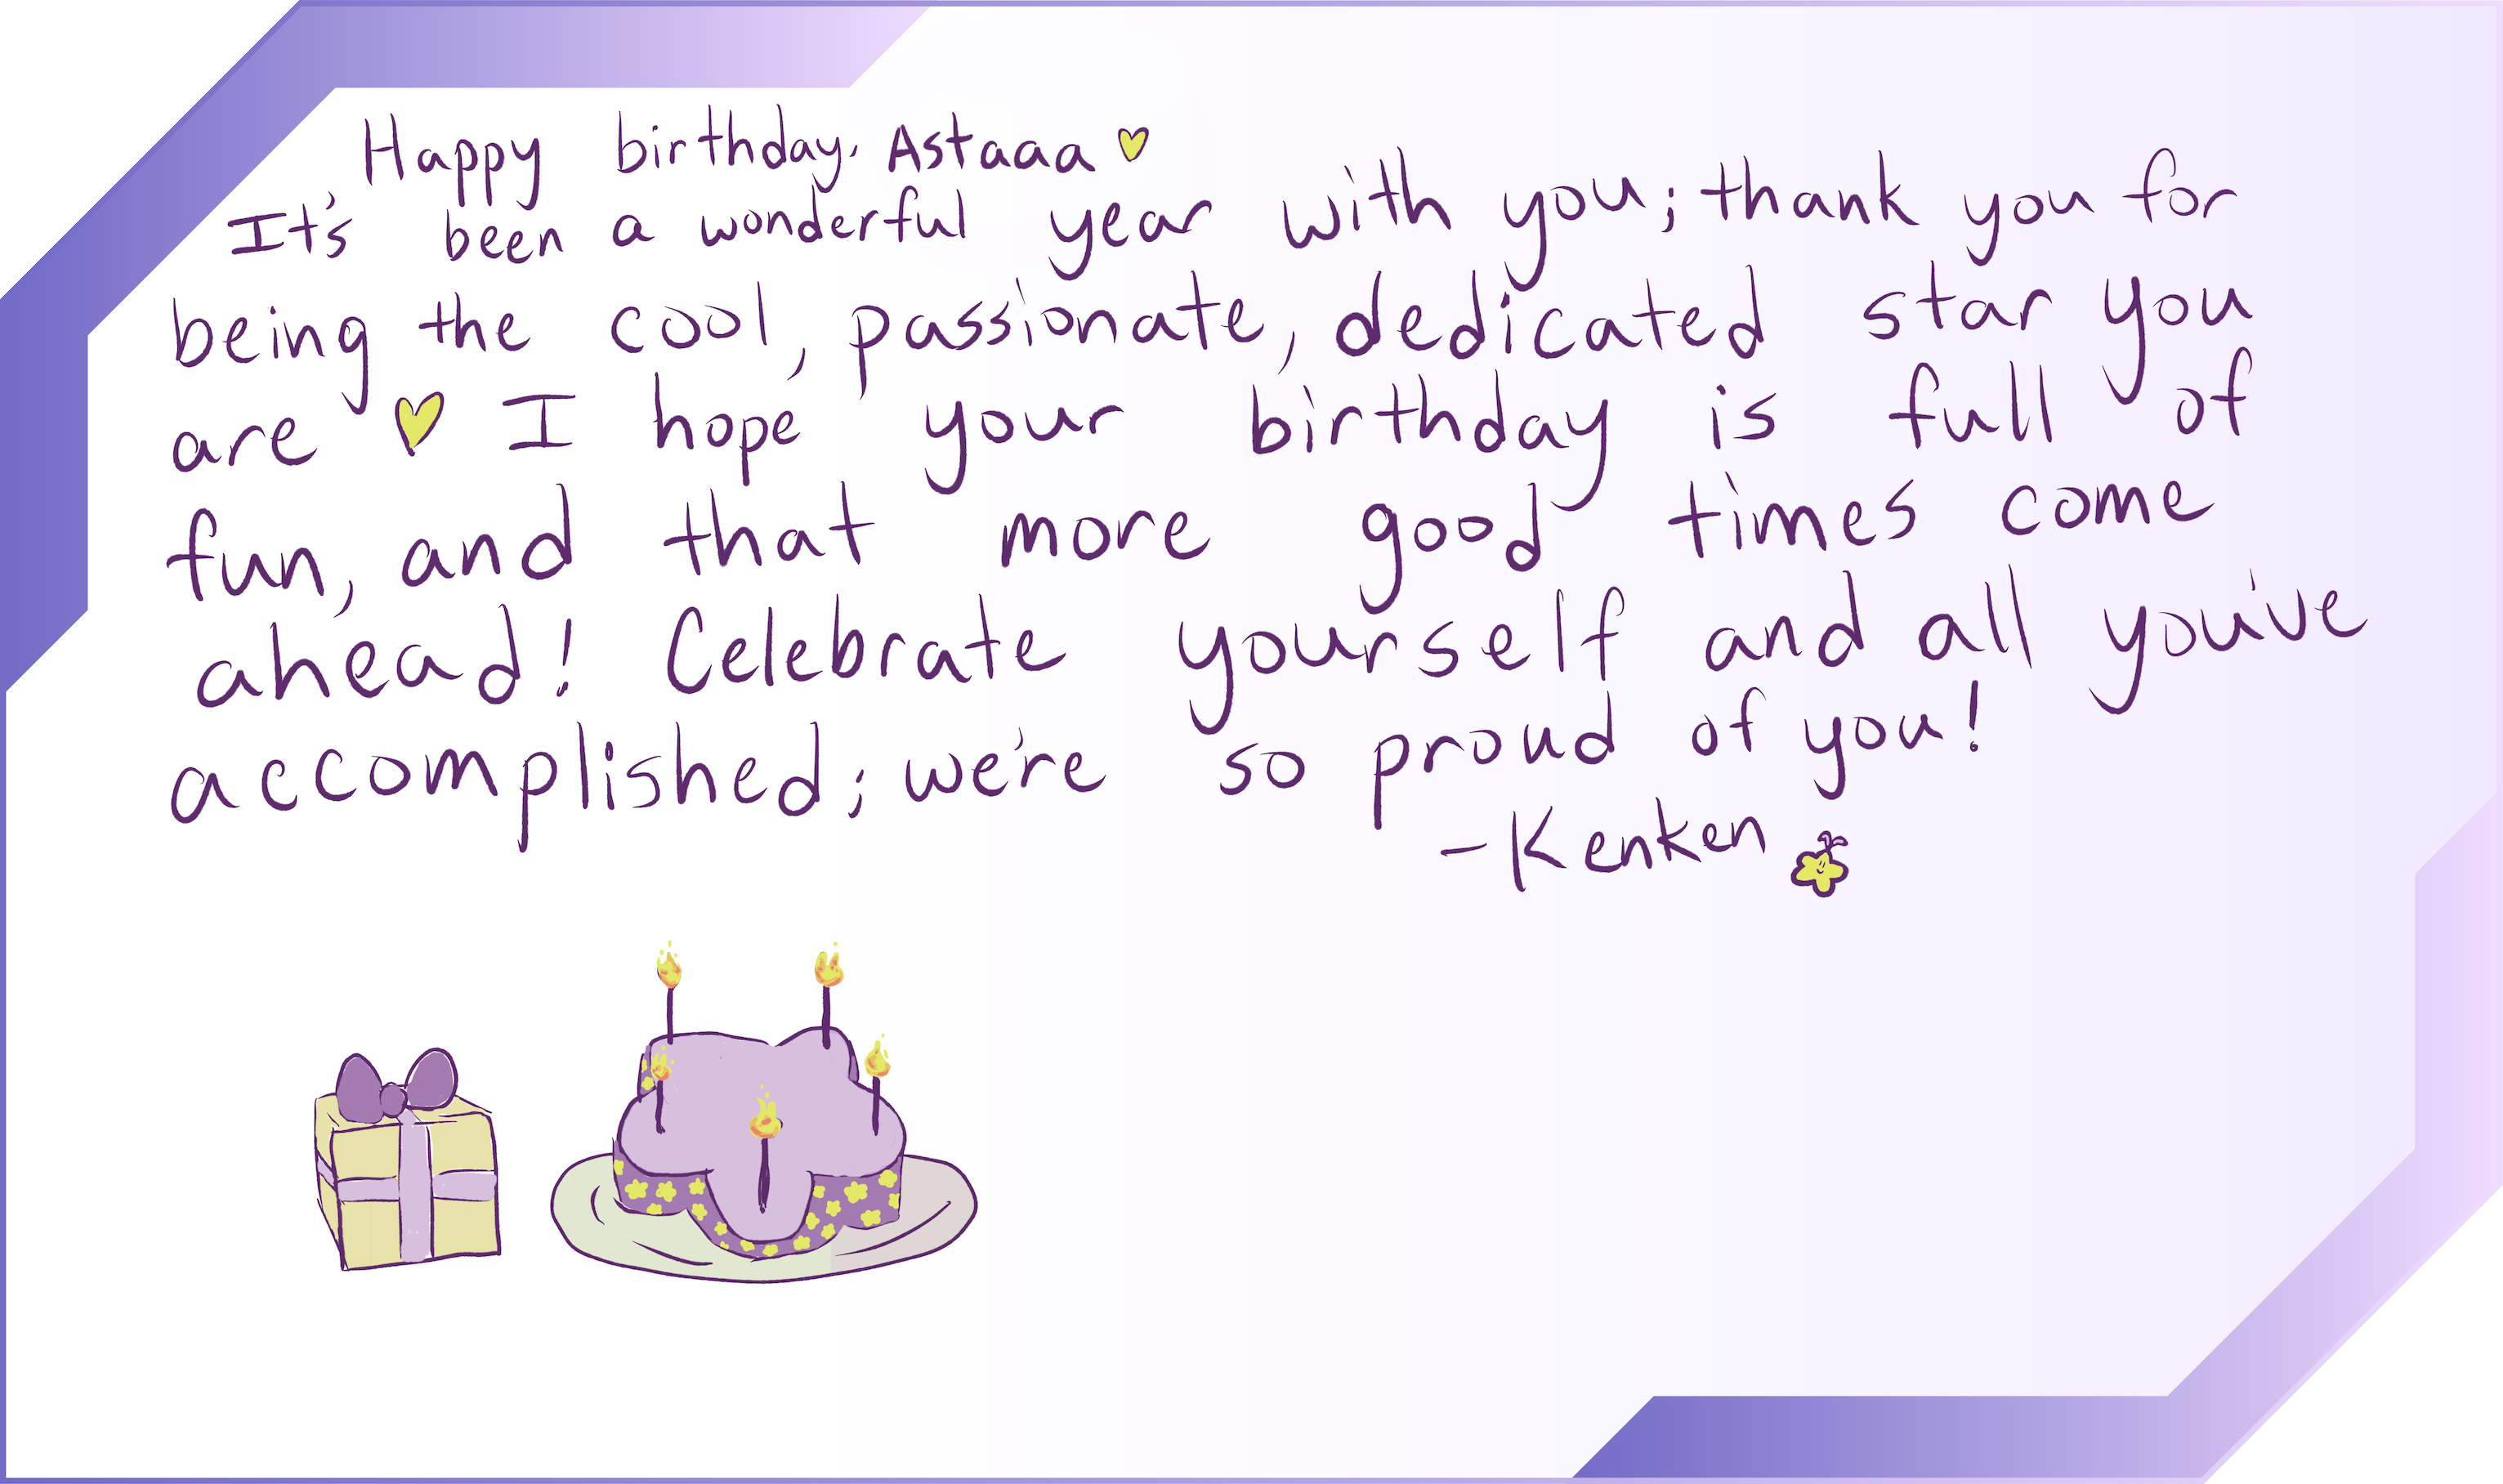 Happy birthday, Astaaaa
It's been a wonderful year with you; thank you for
being the cool, passionate, dedicated star you
are I hope your birthday is full of
fun, and that more good times come
ahead! Celebrate yourself and all you've
accomplished; we're so proud of you!
-Kenken